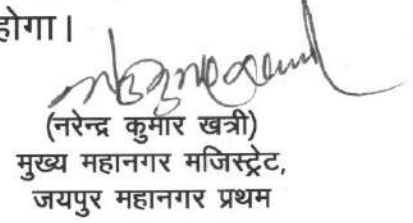 होगा।
(नरेन्द्र कुमार खत्री)
मुख्य महानगर मजिस्ट्रेट,
जयपुर महानगर प्रथम